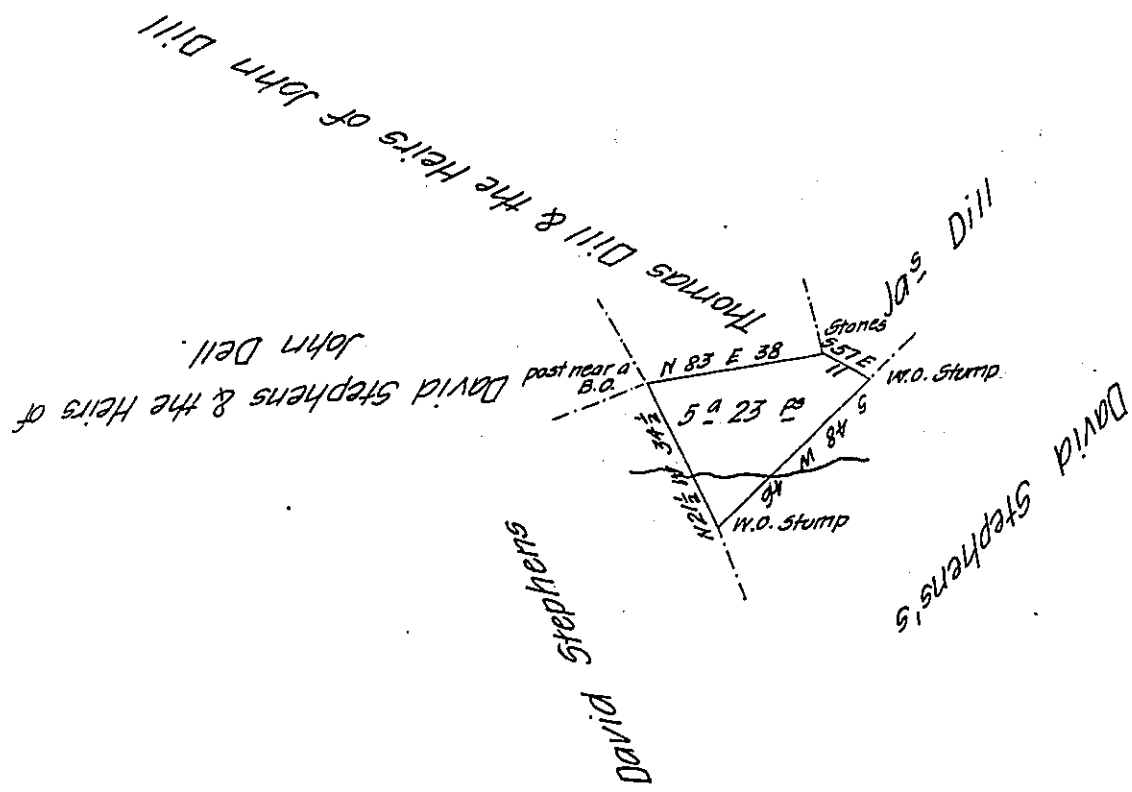 Thomas Dill & the Heirs of John Dill
Jas Dill
David Stephens & the Heirs of
John Dell
post near a
B.O.
N 83 E 38
Stones
S 57 E
11
W.O. Stump
5 a 23 ps
N 21½ W 34½
S 48 W 46
W.O. Stump
David Stephens's
David Stephens